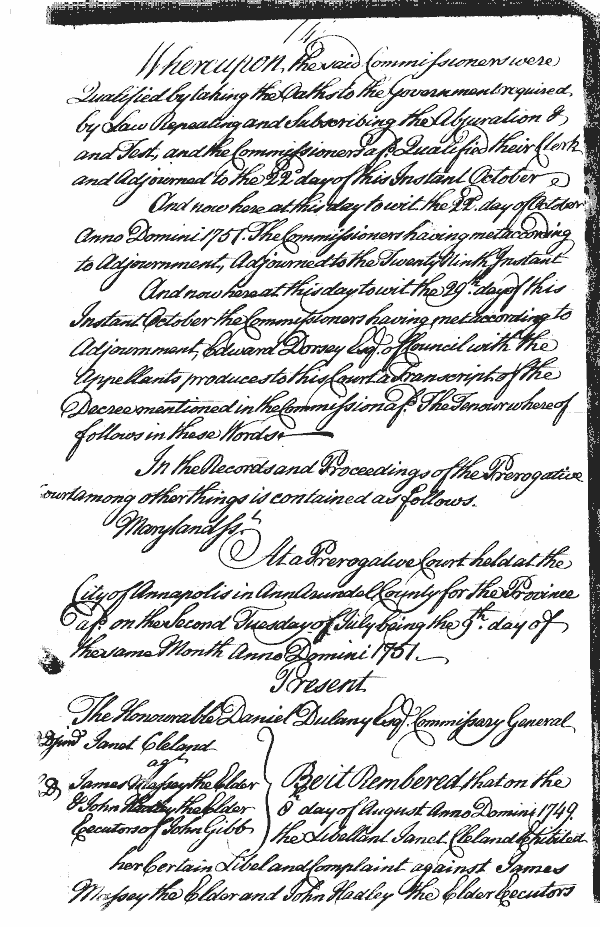 Whereupon, the said Commissioners were
Qualified by taking the Oaths to the Government required,
by Law Repeating and Subscribing the Abjuration &
and Test, and the Commissioners afs.d Qualified their Clerk
and Adjourned to the 22.d day of this Instant October
And now here at this day to wit the 22.d day of October
Anno Domini 1751. The Commissioners having met according
to Adjournment, Adjourned to the Twenty Ninth Instant
And now here at this day to wit the 29.th day of this
Instant October the Commissioners having met according to
Adjournment, Edward Dorsey Esq.r of Council with the
Appellants produces to this Court a Transcript of the
Decree mentioned in the Commission afs.d The Tenour whereof
follows in these Words
In the Records and Proceedings of the Prerogative
Court among other things is contained as follows.
Maryland ss.t
At a Prerogative Court held at the
City of Annapolis in Ann Arundel County for the Province
afs.d on the Second Tuesday of July being the 9.th day of
the same Month Anno Domini 1751.
Present
The Honourable Daniel Dulany Esq.r Commissary General
Janet Cleland
ag.t
James Massey the Elder
& John Hadley the Elder
Executors of John Gibb
Be it Rembered that on the
8.th day of August Anno Domini 1749.
the Libellant Janet Cleland Exhibited
her Certain Libel and Complaint against James
Massey the Elder and John Hadley the Elder Executors